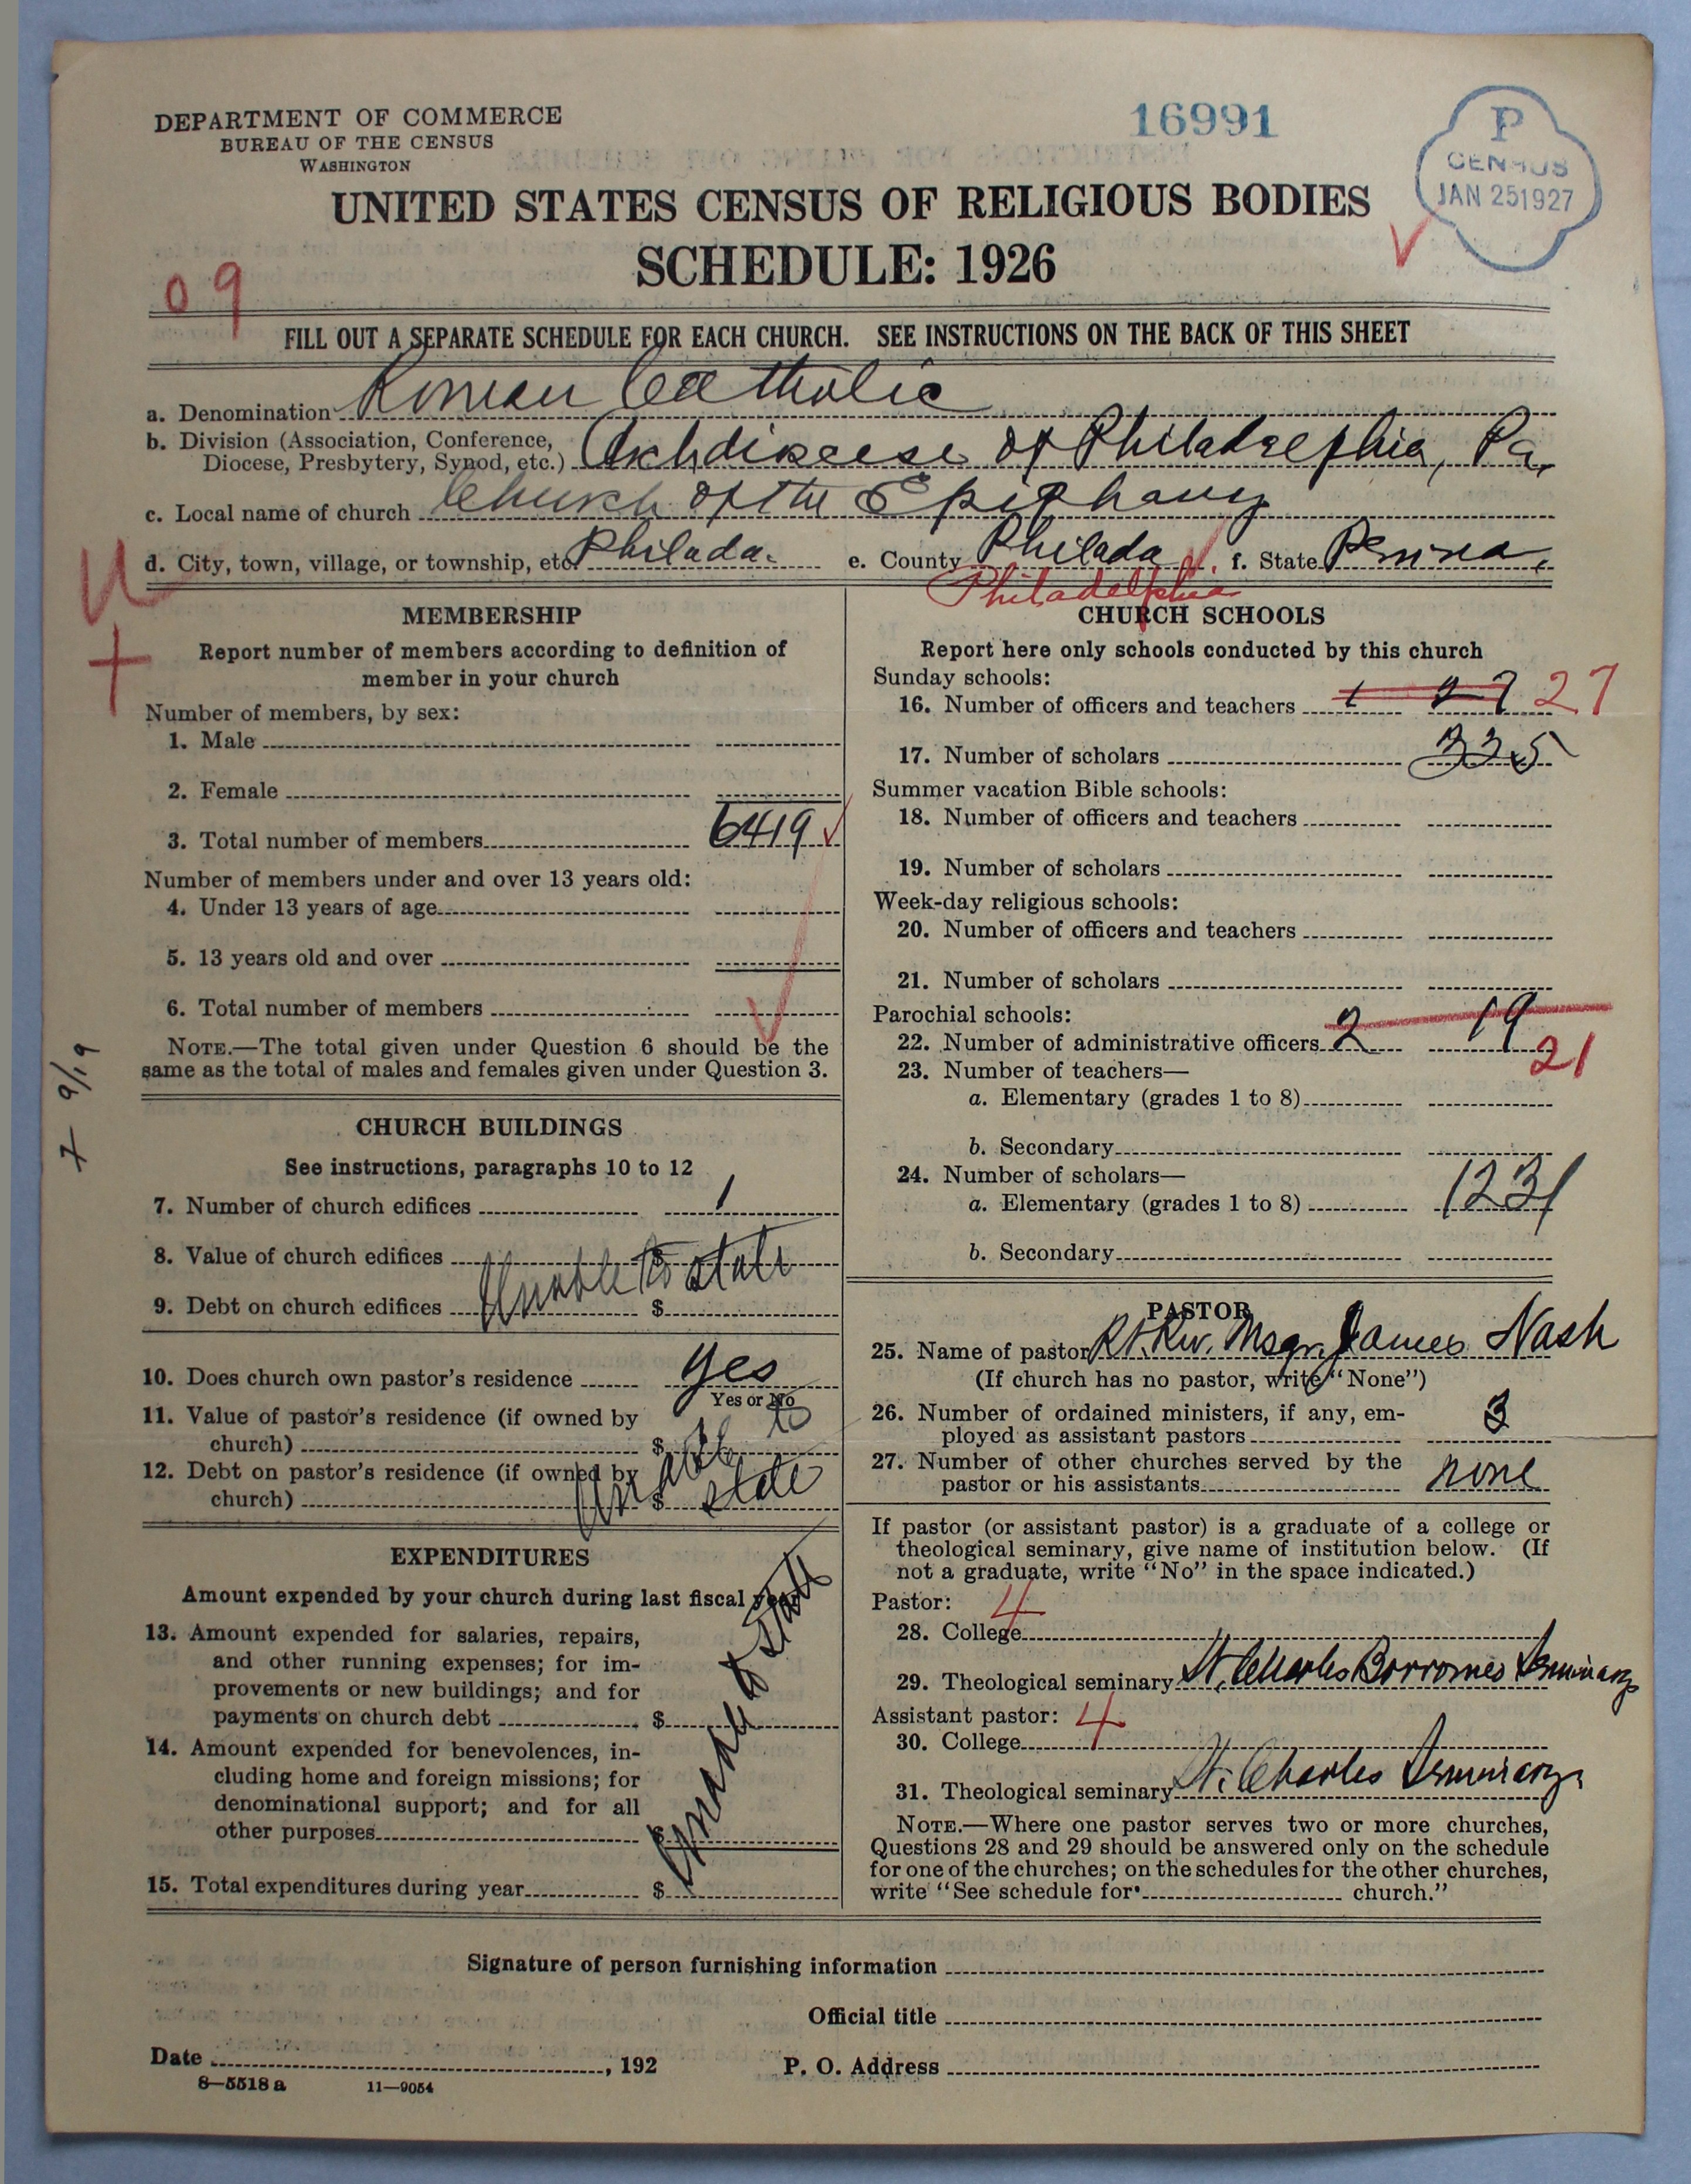 DEPARTMENT OF COMMERCE
BUREAU OF THE CENSUS
WASHINGTON
16991
P
CENSUS
JAN 25 1927
UNITED STATES CENSUS OF RELIGIOUS BODIES
SCHEDULE: 1926
09
FILL OUT A SEPARATE SCHEDULE FOR EACH CHURCH. SEE INSTRUCTIONS ON THE BACK OF THIS SHEET
a. Denomination Roman Catholic
b. Division (Association, Conference, Diocese, Presbytery, Synod, etc.) Archdiocese of Philadelphia, Pa.
c. Local name of church Church of the Epiphany
d. City, town, village, or township, etc. Philada. e. County Philada. f. State Penna.
Philadelphia
MEMBERSHIP
Report number of members according to definition of
member in your church
Number of members, by sex:
1. Male
2. Female
3. Total number of members 6419
Number of members under and over 13 years old:
4. Under 13 years of age
5. 13 years old and over
6. Total number of members
NOTE.—The total given under Question 6 should be the
same as the total of males and females given under Question 3.
CHURCH BUILDINGS
See instructions, paragraphs 10 to 12
7. Number of church edifices 1
8. Value of church edifices $ Unable to state
9. Debt on church edifices $
10. Does church own pastor's residence yes
Yes or No
11. Value of pastor's residence (if owned by
church) $ Unable to
12. Debt on pastor's residence (if owned by
church) $ state
EXPENDITURES
Amount expended by your church during last fiscal year
13. Amount expended for salaries, repairs,
and other running expenses; for im-
provements or new buildings; and for
payments on church debt $
Unable to state
14. Amount expended for benevolences, in-
cluding home and foreign missions; for
denominational support; and for all
other purposes $
15. Total expenditures during year $
CHURCH SCHOOLS
Report here only schools conducted by this church
Sunday schools:
16. Number of officers and teachers 1 27 27
17. Number of scholars 335
Summer vacation Bible schools:
18. Number of officers and teachers
19. Number of scholars
Week-day religious schools:
20. Number of officers and teachers
21. Number of scholars
Parochial schools:
22. Number of administrative officers 2 19
21
23. Number of teachers—
a. Elementary (grades 1 to 8)
b. Secondary
24. Number of scholars—
a. Elementary (grades 1 to 8) 1231
b. Secondary
PASTOR
25. Name of pastor Rt. Rev. Msgr. James Nash
(If church has no pastor, write "None")
26. Number of ordained ministers, if any, em-
ployed as assistant pastors 3
27. Number of other churches served by the
pastor or his assistants none
If pastor (or assistant pastor) is a graduate of a college or
theological seminary, give name of institution below. (If
not a graduate, write "No" in the space indicated.)
Pastor: 4
28. College
29. Theological seminary St. Charles Borromeo Seminary
Assistant pastor: 4
30. College
31. Theological seminary St. Charles Seminary
NOTE.—Where one pastor serves two or more churches,
Questions 28 and 29 should be answered only on the schedule
for one of the churches; on the schedules for the other churches,
write "See schedule for church."
Signature of person furnishing information
Official title
Date , 192 P. O. Address
8—5518 a 11—9054